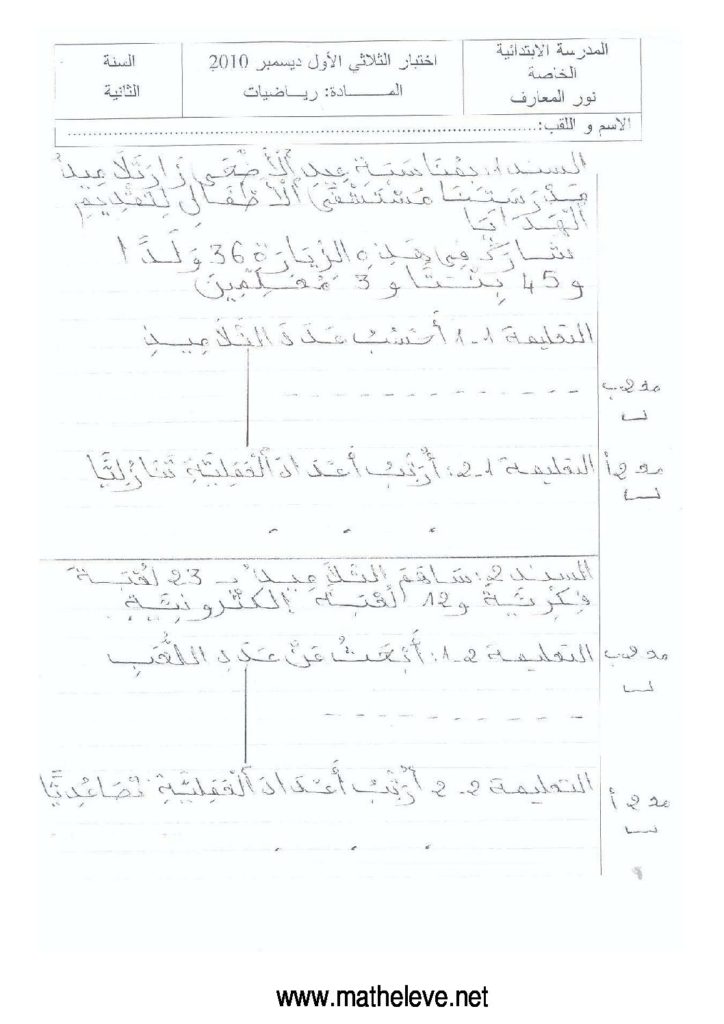 المدرسة الابتدائية
الخاصة
نور المعارف
اختبار الثلاثي الأول ديسمبر 2010
المـــــادة: رياضيات
السنة
الثانية
الاسم و اللقب:........................................................
السند 1: بِمُنَاسَبَةِ عِيدِ الْأَضْحَى زَارَ تَلَامِيذُ
مَدْرَسَتِنَا مُسْتَشْفَى الْأَطْفَالِ لِتَقْدِيمِ
الْهَدَايَا
شَارَكَ فِي هَذِهِ الزِّيَارَةِ 36 وَلَدًا
و 45 بِنْتًا و 3 مُعَلِّمِينَ
التعليمة 1-1 أَحْسُبُ عَدَدَ التَّلَامِيذِ
مع 2 ب
التعليمة 1-2: أُرَتِّبُ أَعْدَادَ الْعَمَلِيَّةِ تَنَازُلِيًّا
مع 2 أ
السند 2: سَاهَمَ التَّلَامِيذُ بـ 23 لُعْبَةً
فِكْرِيَّةً و 12 لُعْبَةً إِلِكْتْرُونِيَّةً
التعليمة 2-1: أَبْحَثُ عَنْ عَدَدِ اللُّعَبِ
مع 2 ب
التعليمة 2-2 أُرَتِّبُ أَعْدَادَ الْعَمَلِيَّةِ تَصَاعُدِيًّا
مع 2 أ
www.matheleve.net